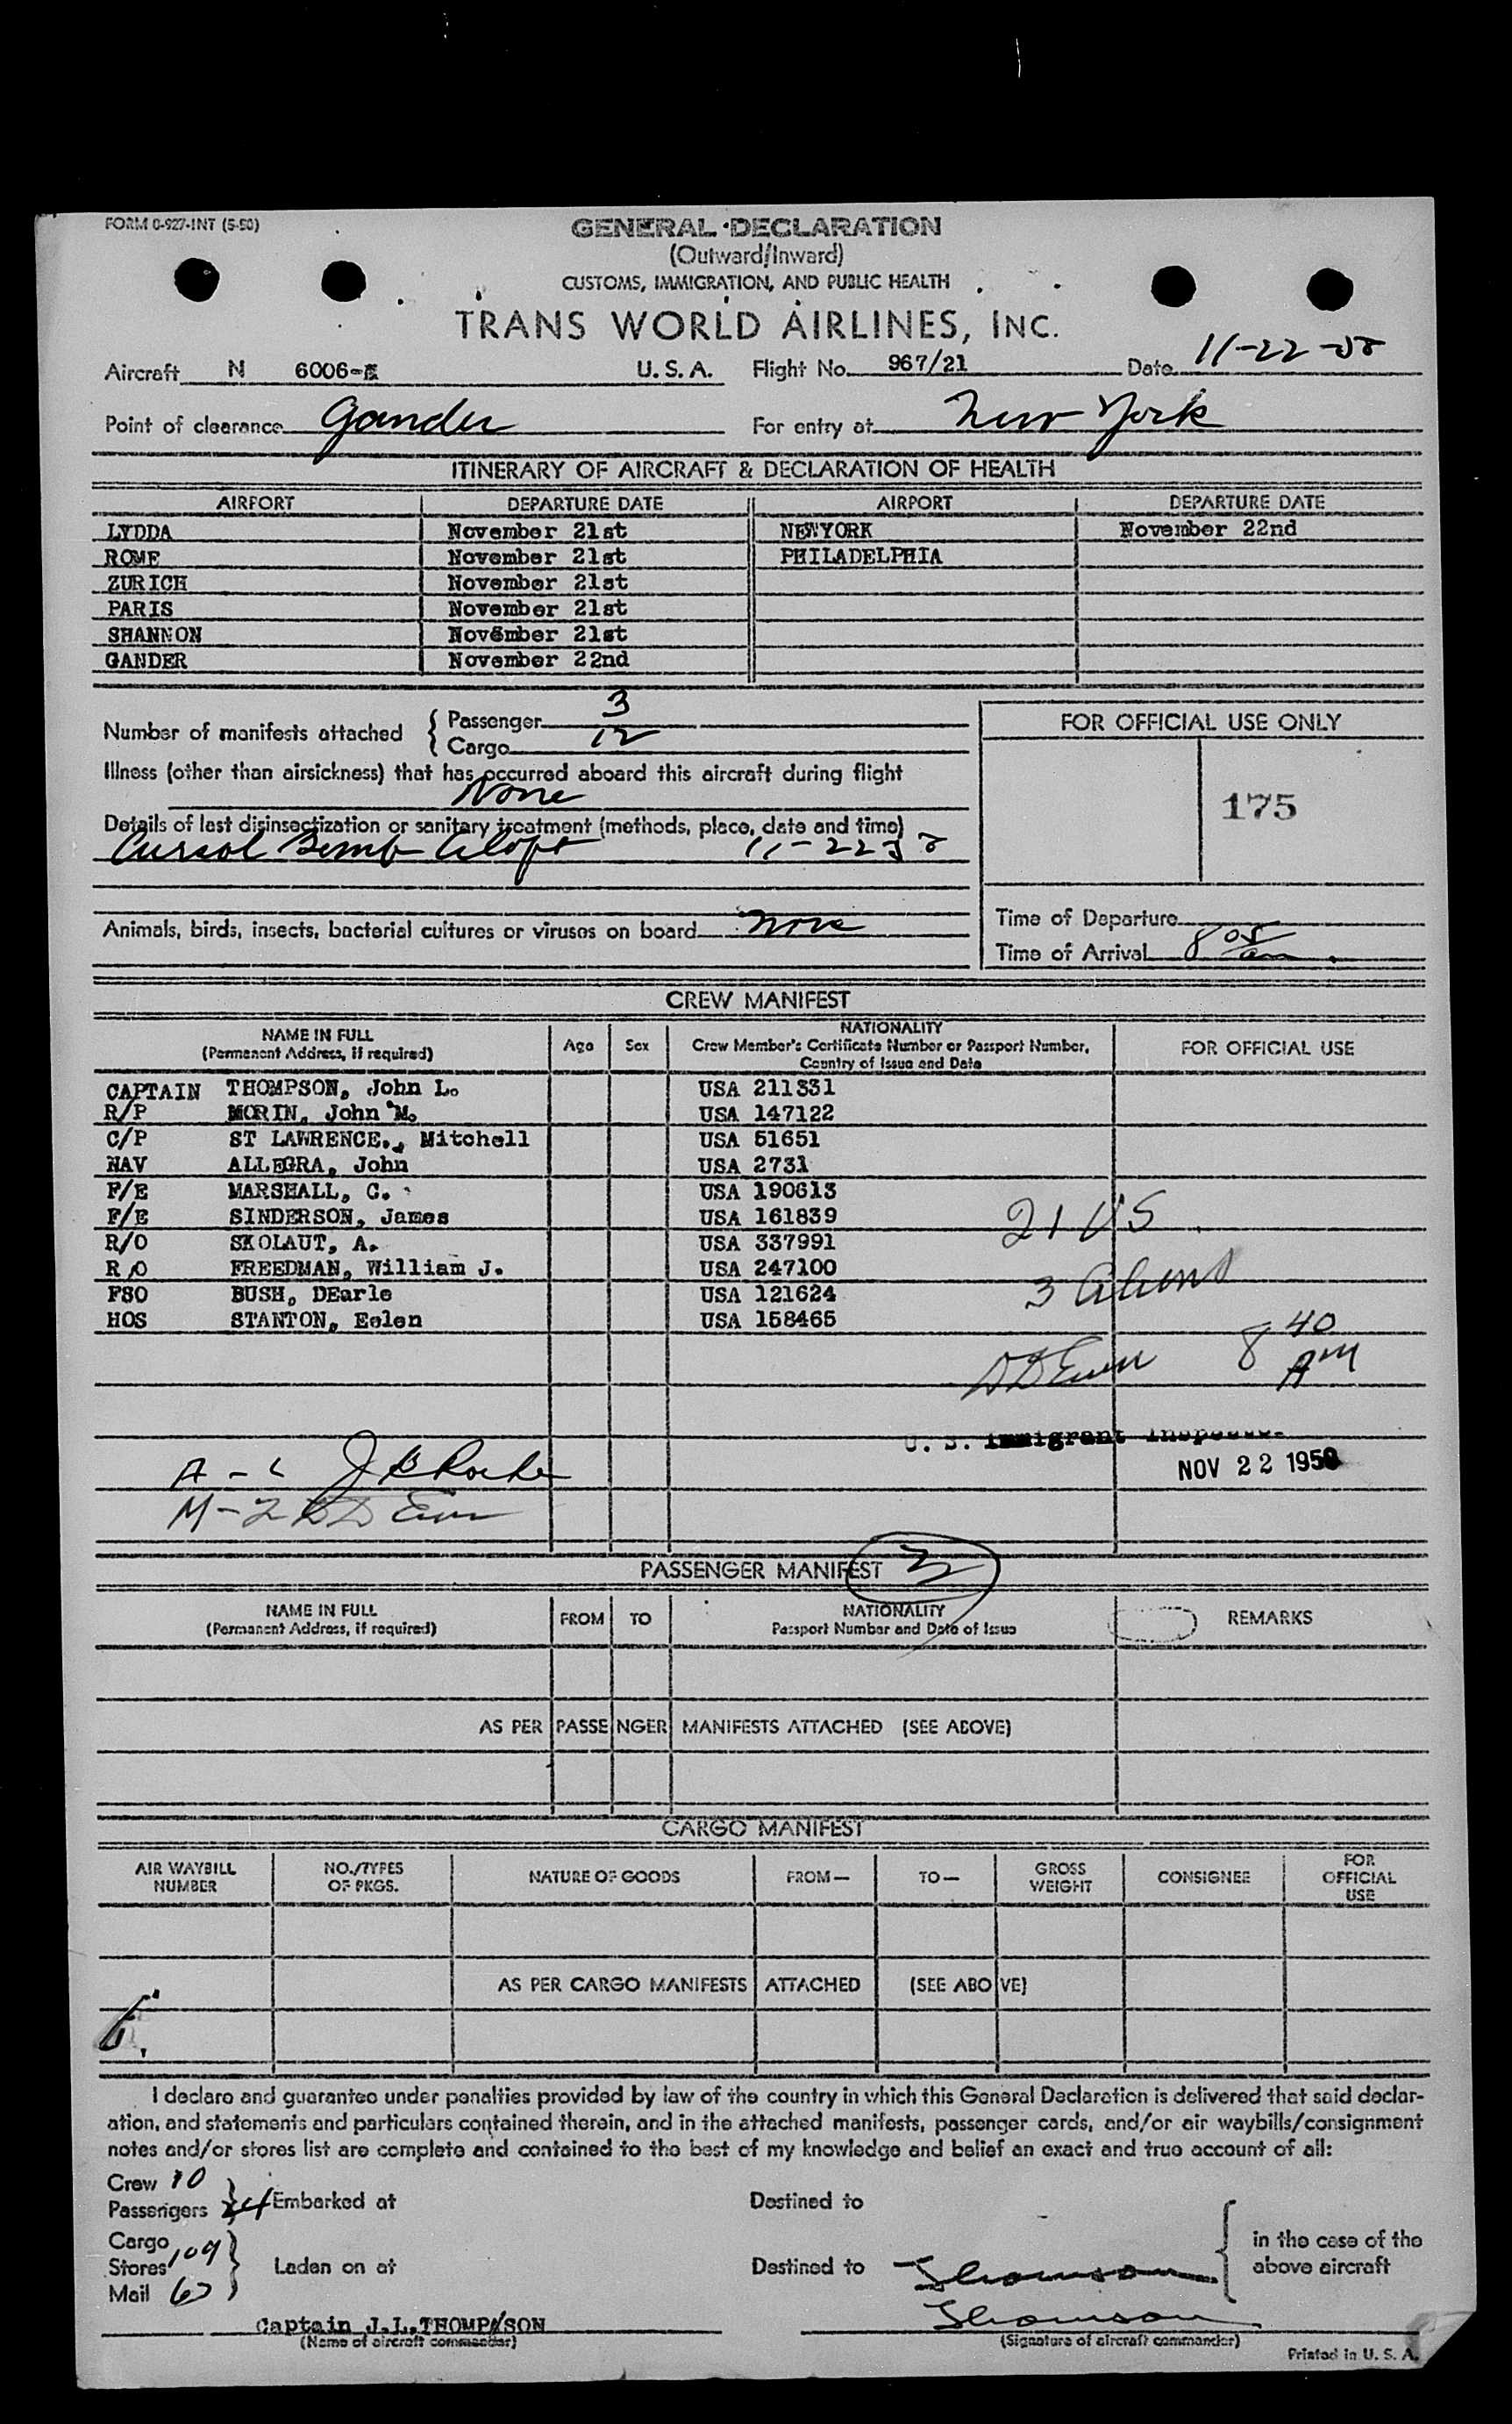 FORM 0-927-INT (5-50)
GENERAL DECLARATION
(Outward/Inward)
CUSTOMS, IMMIGRATION, AND PUBLIC HEALTH
TRANS WORLD AIRLINES, INC.
Aircraft N 6006- U. S. A. Flight No. 967/21 Date 11-22-50
Point of clearance Gander For entry at New York
ITINERARY OF AIRCRAFT & DECLARATION OF HEALTH
AIRPORT DEPARTURE DATE AIRPORT DEPARTURE DATE
LYDDA November 21st NEWYORK November 22nd
ROME November 21st PHILADELPHIA
ZURICH November 21st
PARIS November 21st
SHANNON November 21st
GANDER November 22nd
Number of manifests attached { Passenger 3
Cargo 12
FOR OFFICIAL USE ONLY
175
Illness (other than airsickness) that has occurred aboard this aircraft during flight
None
Details of last disinsectization or sanitary treatment (methods, place, date and time)
Bomb Aloft 11-22-50
Animals, birds, insects, bacterial cultures or viruses on board None
Time of Departure
Time of Arrival 8 05 am
CREW MANIFEST
NAME IN FULL
(Permanent Address, if required)
Age Sex
NATIONALITY
Crew Member's Certificate Number or Passport Number,
Country of Issue and Date
FOR OFFICIAL USE
CAPTAIN THOMPSON, John L. USA 211331
R/P MORIN, John M. USA 147122
C/P ST LAWRENCE., Mitchell USA 51651
NAV ALLEGRA, John USA 2731
F/E MARSHALL, C. USA 190613
F/E SINDERSON, James USA 161839
R/O SKOLAUT, A. USA 337991
R/O FREEDMAN, William J. USA 247100
FSO BUSH, DEarle USA 121624
HOS STANTON, Eelen USA 158465
21 US
3 Aliens
8 40 AM
U. S. Immigrant Inspector
NOV 22 1950
PASSENGER MANIFEST 3
NAME IN FULL
(Permanent Address, if required)
FROM TO
NATIONALITY
Passport Number and Date of Issue
REMARKS
AS PER PASSENGER MANIFESTS ATTACHED (SEE ABOVE)
CARGO MANIFEST
AIR WAYBILL
NUMBER
NO./TYPES
OF PKGS.
NATURE OF GOODS
FROM—
TO—
GROSS
WEIGHT
CONSIGNEE
FOR
OFFICIAL
USE
AS PER CARGO MANIFESTS ATTACHED (SEE ABOVE)
I declare and guarantee under penalties provided by law of the country in which this General Declaration is delivered that said declar-
ation, and statements and particulars contained therein, and in the attached manifests, passenger cards, and/or air waybills/consignment
notes and/or stores list are complete and contained to the best of my knowledge and belief an exact and true account of all:
Crew 10
Passengers 24 Embarked at Destined to
Cargo
Stores 109 Laden on at Destined to
Mail
in the case of the
above aircraft
Captain J.L.THOMP/SON
(Name of aircraft commander)
(Signature of aircraft commander)
Printed in U. S. A.